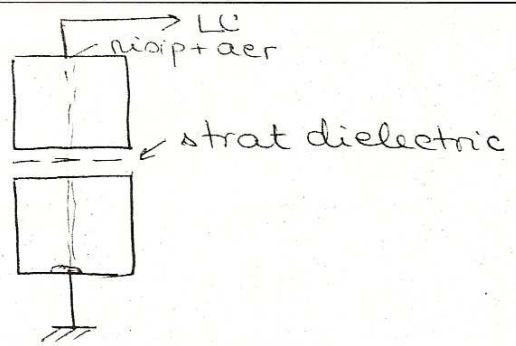 LC
nisip + aer
strat dielectric